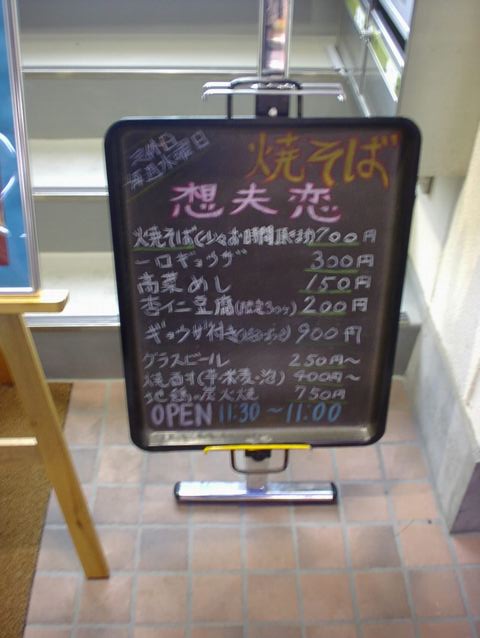 定休日
毎週水曜日
焼そば
想夫恋
焼そば(少々お時間頂きます)700円
一口ギョウザ 300円
高菜めし 150円
杏仁豆腐 200円
ギョウザ付き 900円
グラスビール 250円〜
焼酎(芋・米・麦・泡) 400円〜
地鶏の炭火焼 750円
OPEN 11:30〜11:00